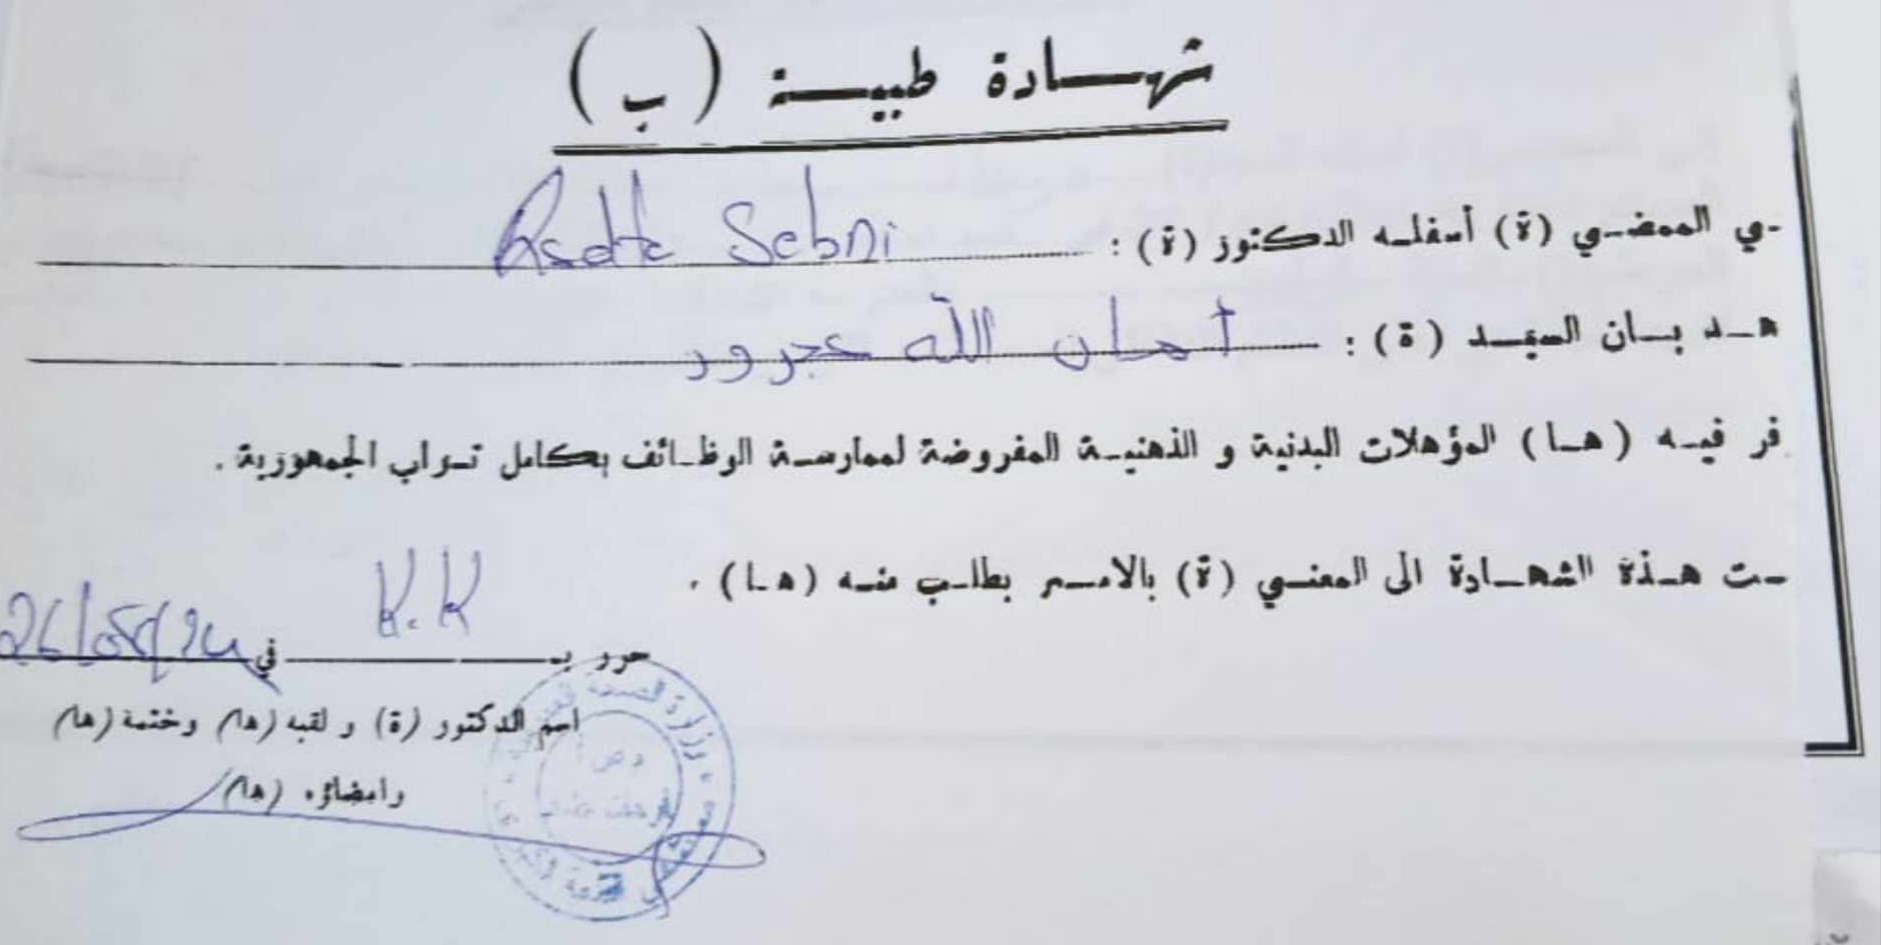 شهادة طبية (ب)
ـي الممضي (ة) أسفله الدكتور (ة) : Sebni
ـهد بأن السيد (ة) : أمان الله عجرود
فر فيه (ها) المؤهلات البدنية و الذهنية المفروضة لممارسة الوظائف بكامل تراب الجمهورية .
ـت هذة الشهادة الى المعني (ة) بالامر بطلب منه (ها) .
حرر بـ K.K في 26/05/24
اسم الدكتور (ة) و لقبه (ها) وختمة (ها)
وامضاؤه (ها)
وزارة الصحة